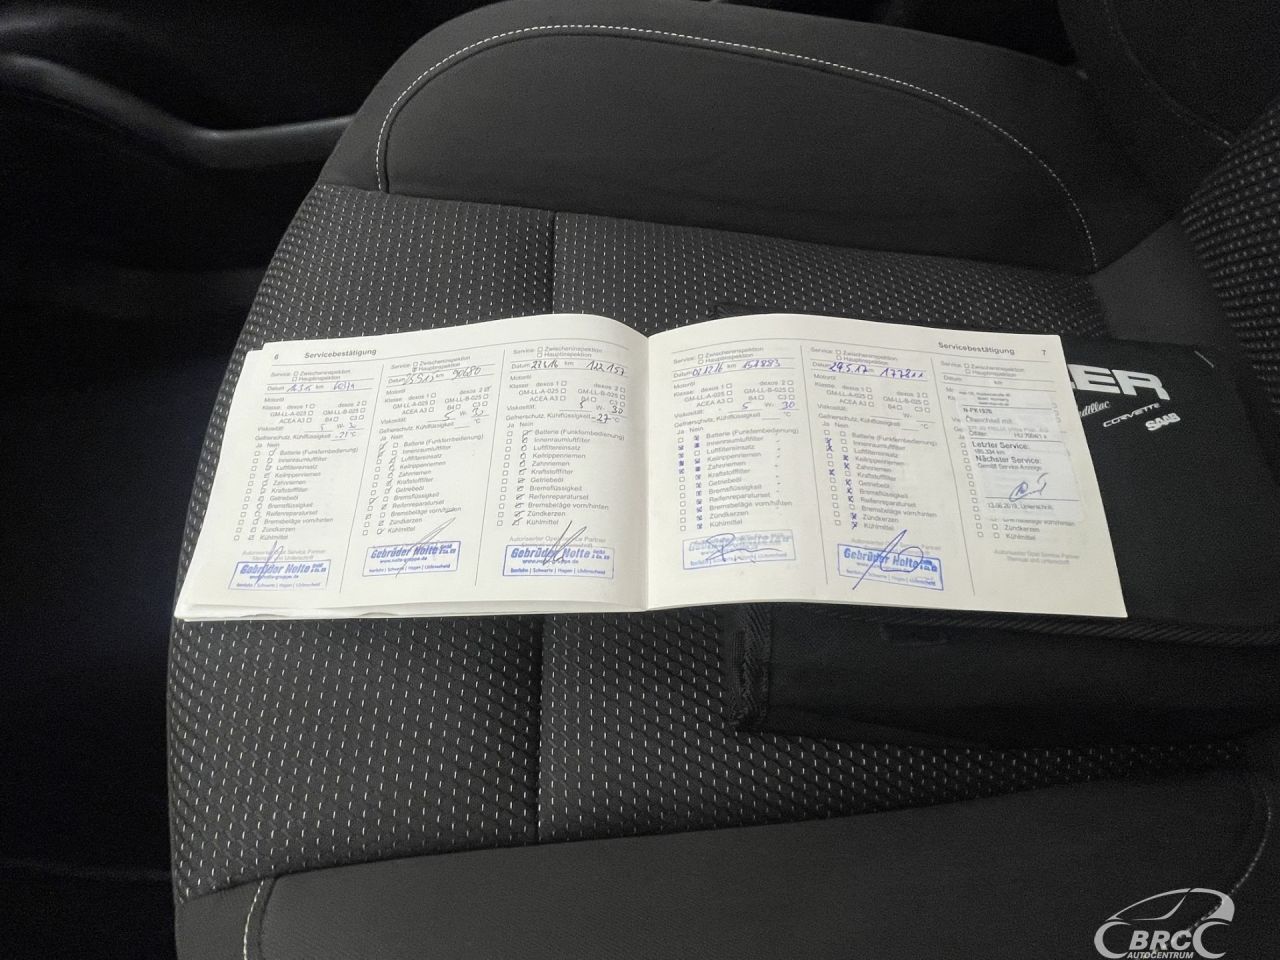 6 Servicebestätigung
Service: Zwischeninspektion
Hauptinspektion
Datum km
Motoröl
Klasse: dexos 1 dexos 2
GM-LL-A-025 GM-LL-B-025
ACEA A3 B4 C3
Viskosität: W-
Gefrierschutz, Kühlflüssigkeit -21 °C
Ja Nein
Batterie (Funkfernbedienung)
Innenraumluftfilter
Luftfiltereinsatz
Keilrippenriemen
Zahnriemen
Kraftstofffilter
Getriebeöl
Bremsflüssigkeit
Reifenreparaturset
Bremsbeläge vorn/hinten
Zündkerzen
Kühlmittel
Autorisierter Opel Service Partner
Stempel und Unterschrift
Gebrüder Nolte GmbH & Co. KG
www.nolte-gruppe.de
Iserlohn | Schwerte | Hagen | Lüdenscheid
Service: Zwischeninspektion
Hauptinspektion
Datum km 90680
Motoröl
Klasse: dexos 1 dexos 2
GM-LL-A-025 GM-LL-B-025
ACEA A3 B4 C3
Viskosität: 5 W- 30
Gefrierschutz, Kühlflüssigkeit °C
Ja Nein
Batterie (Funkfernbedienung)
Innenraumluftfilter
Luftfiltereinsatz
Keilrippenriemen
Zahnriemen
Kraftstofffilter
Getriebeöl
Bremsflüssigkeit
Reifenreparaturset
Bremsbeläge vorn/hinten
Zündkerzen
Kühlmittel
Gebrüder Nolte GmbH & Co. KG
www.nolte-gruppe.de
Iserlohn | Schwerte | Hagen | Lüdenscheid
Service: Zwischeninspektion
Hauptinspektion
Datum km 122157
Motoröl
Klasse: dexos 1 dexos 2
GM-LL-A-025 GM-LL-B-025
ACEA A3 B4 C3
Viskosität: 5 W- 30
Gefrierschutz, Kühlflüssigkeit -27 °C
Ja Nein
Batterie (Funkfernbedienung)
Innenraumluftfilter
Luftfiltereinsatz
Keilrippenriemen
Zahnriemen
Kraftstofffilter
Getriebeöl
Bremsflüssigkeit
Reifenreparaturset
Bremsbeläge vorn/hinten
Zündkerzen
Kühlmittel
Autorisierter Opel Service Partner
Gebrüder Nolte GmbH & Co. KG
www.nolte-gruppe.de
Iserlohn | Schwerte | Hagen | Lüdenscheid
Servicebestätigung 7
Service: Zwischeninspektion
Hauptinspektion
Datum km
Motoröl
Klasse: dexos 1 dexos 2
GM-LL-A-025 GM-LL-B-025
ACEA A3 B4 C3
Viskosität: 5 W- 30
Gefrierschutz, Kühlflüssigkeit °C
Ja Nein
Batterie (Funkfernbedienung)
Innenraumluftfilter
Luftfiltereinsatz
Keilrippenriemen
Zahnriemen
Kraftstofffilter
Getriebeöl
Bremsflüssigkeit
Reifenreparaturset
Bremsbeläge vorn/hinten
Zündkerzen
Kühlmittel
Service: Zwischeninspektion
Hauptinspektion
Datum 29.5.17 km 177811
Motoröl
Klasse: dexos 1 dexos 2
GM-LL-A-025 GM-LL-B-025
ACEA A3 B4 C3
Viskosität: W-
Gefrierschutz, Kühlflüssigkeit °C
Ja Nein
Batterie (Funkfernbedienung)
Innenraumluftfilter
Luftfiltereinsatz
Keilrippenriemen
Zahnriemen
Kraftstofffilter
Getriebeöl
Bremsflüssigkeit
Reifenreparaturset
Bremsbeläge vorn/hinten
Zündkerzen
Kühlmittel
Autorisierter Opel Service Partner
Gebrüder Nolte GmbH & Co. KG
www.nolte-gruppe.de
Iserlohn | Schwerte | Hagen | Lüdenscheid
Service: Zwischeninspektion
Hauptinspektion
Datum km
Letzter Service:
Nächster Service:
Gemäß Service Anzeige
Unterschrift
Bremsbeläge vorn/hinten
Zündkerzen
Kühlmittel
Autorisierter Opel Service Partner
Stempel und Unterschrift
CORVETTE
SAAB
BRC
AUTOCENTRUM